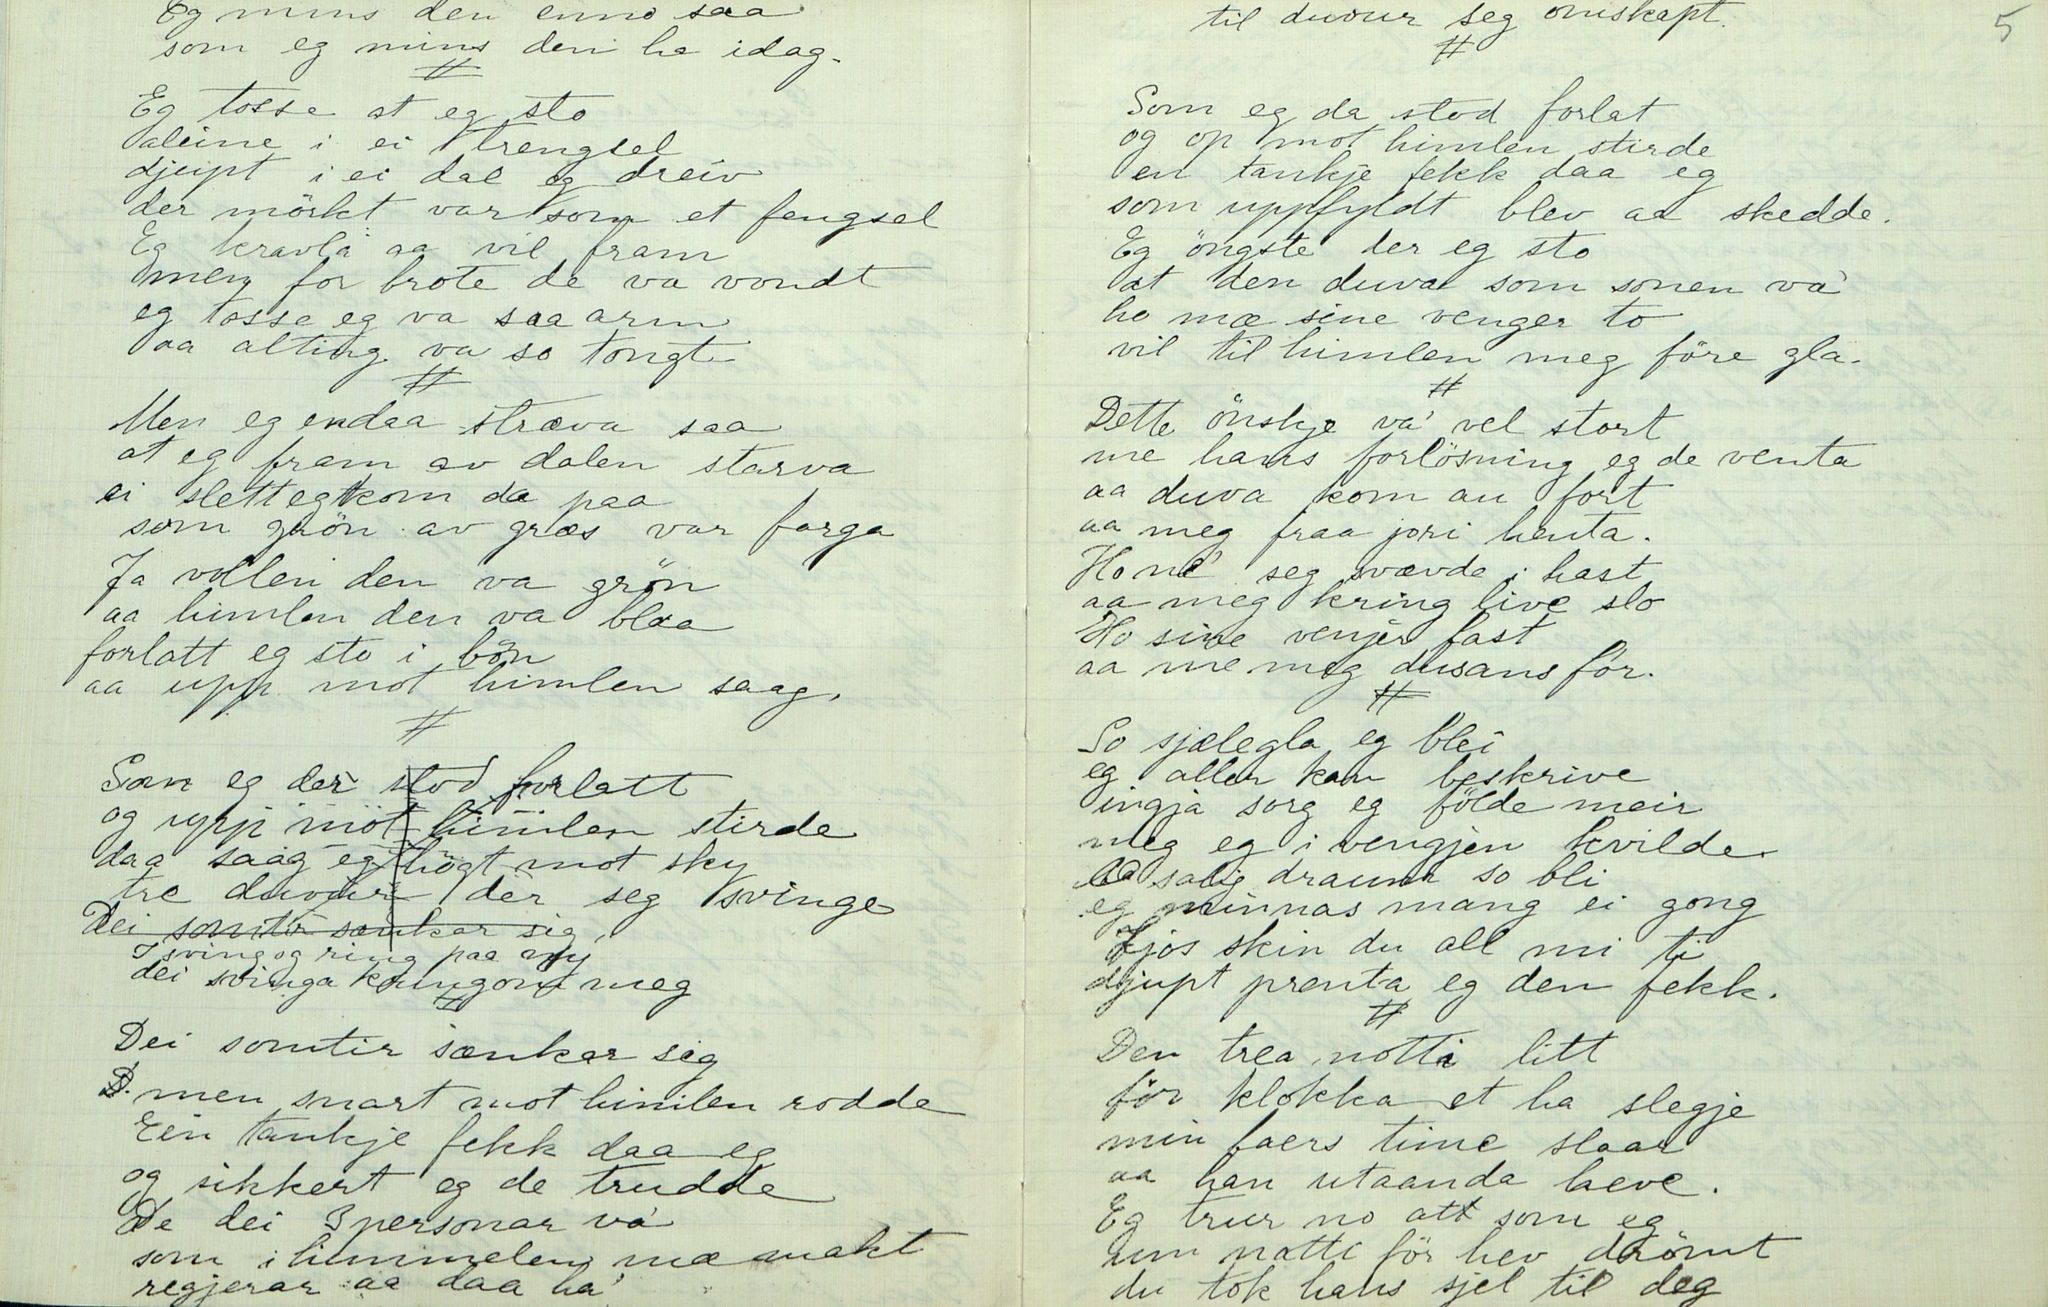 Eg mins den enno saa
som eg mins den ha idag.
#
Eg tosse at eg sto
aleine i ei trengsel
djupt i ei dal eg dreiv
der mörkt var som et fengsel
Eg kravla aa vil fram
men for brote de va vondt
eg tosse eg va saa arm
aa alting va so tongt
#
Men eg endaa stræva saa
at eg fram av dalen starva
ei slett eg kom da paa
som grön av græs var farga
Ja vollen den va grön
aa himlen den va blaa
forlatt eg sto i bön
aa upp mot himlen saag.
#
Som eg der stod forlatt
og upp mot himlen stirde
daa saag eg högt mot sky
tre duvur der seg svinge
Dei somtir sænkar sig,
I sving og ring paa ny
dei svinga kringom meg
#
Dei somtir sænkar sig
men snart mot himlen rodde
Ein tankje fekk daa eg
og sikkert eg de trudde
De dei 3 personar va'
som i himmelen mæ makt
regjerar aa daa ha'
til duvur seg omskapt.
5
#
Som eg da stod forlat
og op mot himlen stirde
en tankje fekk daa eg
som uppfyldt blev aa skedde.
Eg öngste der eg sto
at den duva som sonen va'
ho mæ sine venger to
vil til himlen meg före gla.
#
Dette önskje va' vel stort
me hans forlösning eg de venta
aa duva kom au fort
aa meg fraa jori henta.
Ho ne' seg svævde i hast
aa meg kring live slo
Ho sine venjer fast
aa me meg dusans för.
#
So sjælegla eg blei
eg aller kan beskrive
ingja sorg eg földe meir
meg eg i vengjen kvilde
Aa salig draum so bli
eg minnas mang ei gong
Ljos skin du all mi ti
djupt prenta eg den fekk.
#
Den trea notti litt
för klokka et ha slegje
min faers time slaar
aa han utaanda haeve.
Eg trur no att som eg
um notti för hev drömt
du tok hans sjel til deg